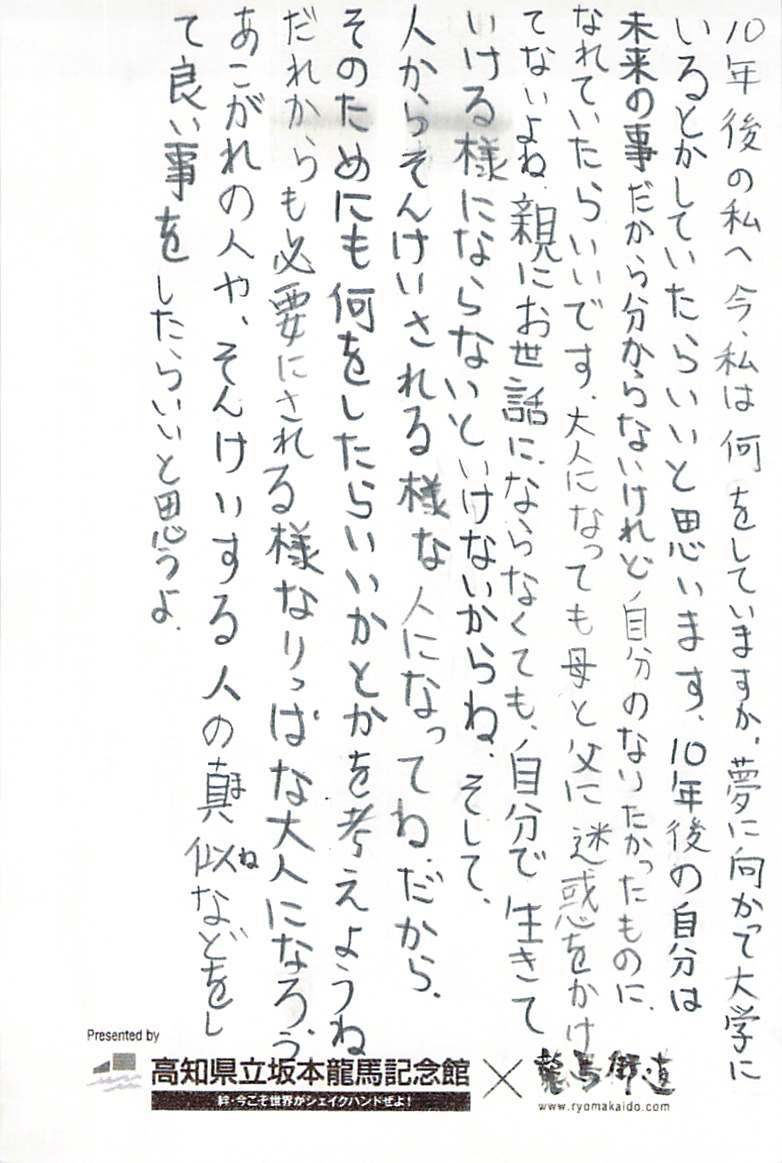 10年後の私へ 今、私は何をしていますか。夢に向かって大学に
いるとかしていたらいいと思います。10年後の自分は
未来の事だから分からないけれど自分のなりたかったものに、
なれていたらいいです。大人になっても母と父に迷惑をかけ
てないよね。親にお世話に、ならなくても、自分で生きて
いける様にならないといけないからね。そして、
人からそんけいされる様な人になってね。だから、
そのためにも何をしたらいいかとかを考えようね
だれからも必要にされる様なりっぱな大人になろう。
あこがれの人や、そんけいする人の真似などをし
まね
て良い事をしたらいいと思うよ。
Presented by
高知県立坂本龍馬記念館
絆・今こそ世界がシェイクハンドぜよ!
×
龍馬街道
www.ryomakaido.com